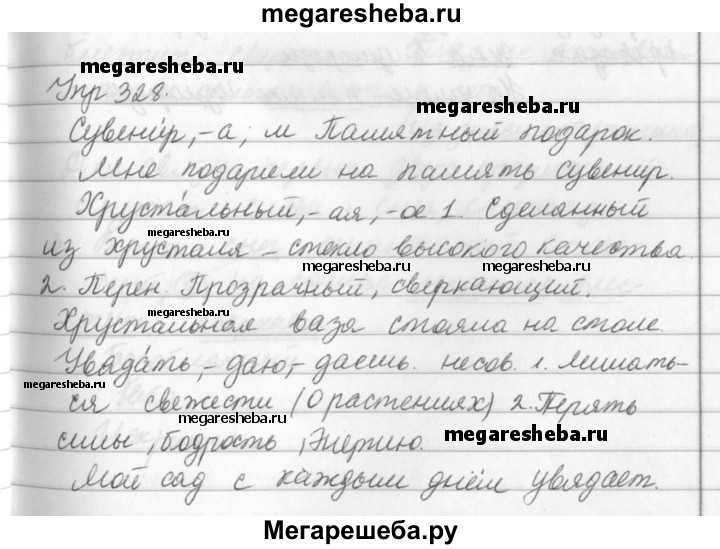 megaresheba.ru
megaresheba.ru
Упр 328.
megaresheba.ru
Сувени́р, -а, м Памятный подарок.
Мне подарили на память сувенир.
Хруста́льный, -ая, -ое 1. Сделанный
megaresheba.ru
из хрусталя - стекло высокого качества.
megaresheba.ru
megaresheba.ru
2. Перен. Прозрачный, сверкающий.
megaresheba.ru
Хрустальная ваза стояла на столе.
Увяда́ть, - даю, - даешь. несов. 1. Лишать-
megaresheba.ru
ся свежести (О растениях) 2. Терять
megaresheba.ru
силы, бодрость, энергию.
megaresheba.ru
Мой сад с каждым днём увядает.
Мегарешеба.ру